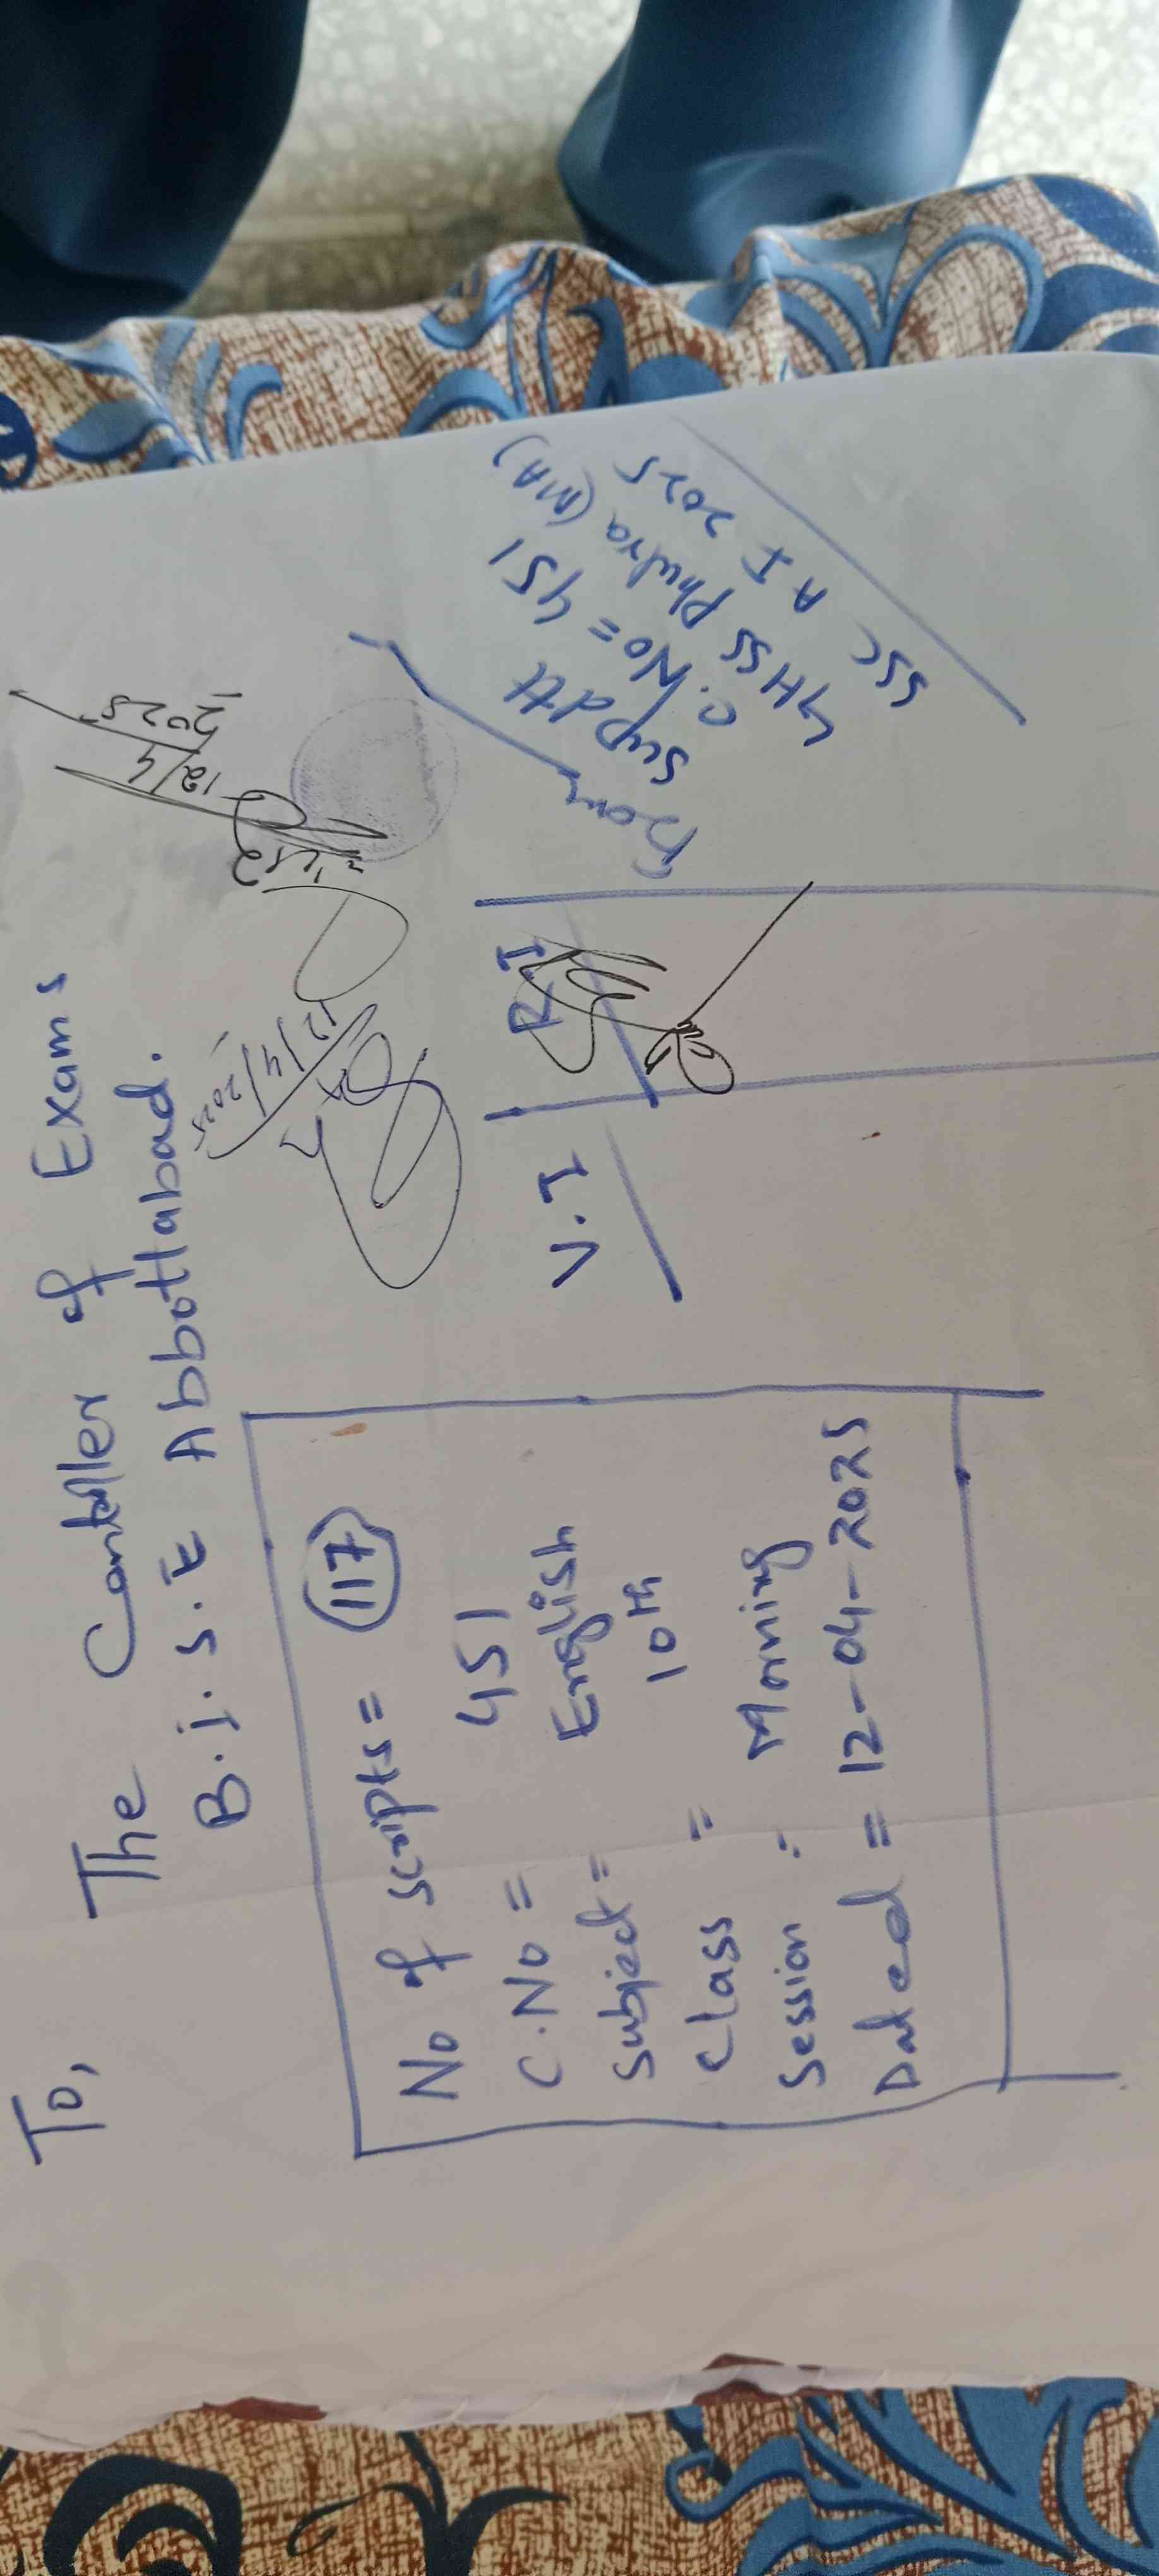 To,
The Contoller of Exams
B.i.S.E Abbottabad.
No of scripts = 117
C.No = 451
Subject = English
Class = 10th
Session : Morning
Dated = 12-04-2025
V.I
R.I
12/4/2025
12/4
2025
From
Supdtt
C.No = 451
GHSS Phulra (MA)
SSC A I 2025